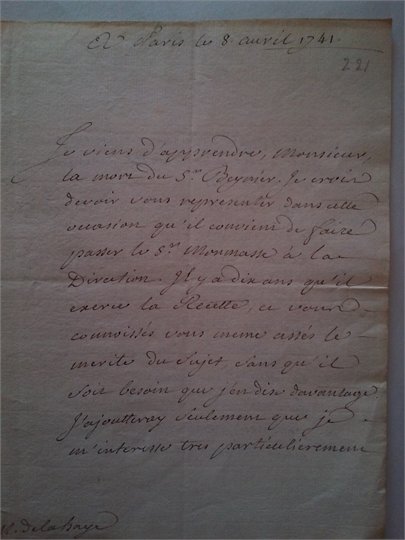 Paris le 8 avril 1741.
221
Je viens d'apprendre, Monsieur,
la mort du Sr. Je crois
devoir vous representer dans cette
occasion qu'il convient de faire
passer le Sr. Monmasse à la
Direction. Il y a dix ans qu'il
exerce la Recette, et vous
connoissés vous meme assés le
merite du Sujet, sans qu'il
soit besoin que j'en dise davantage
J'ajoutteray seulement que je
m'interesse tres particulierement
M. de la haye